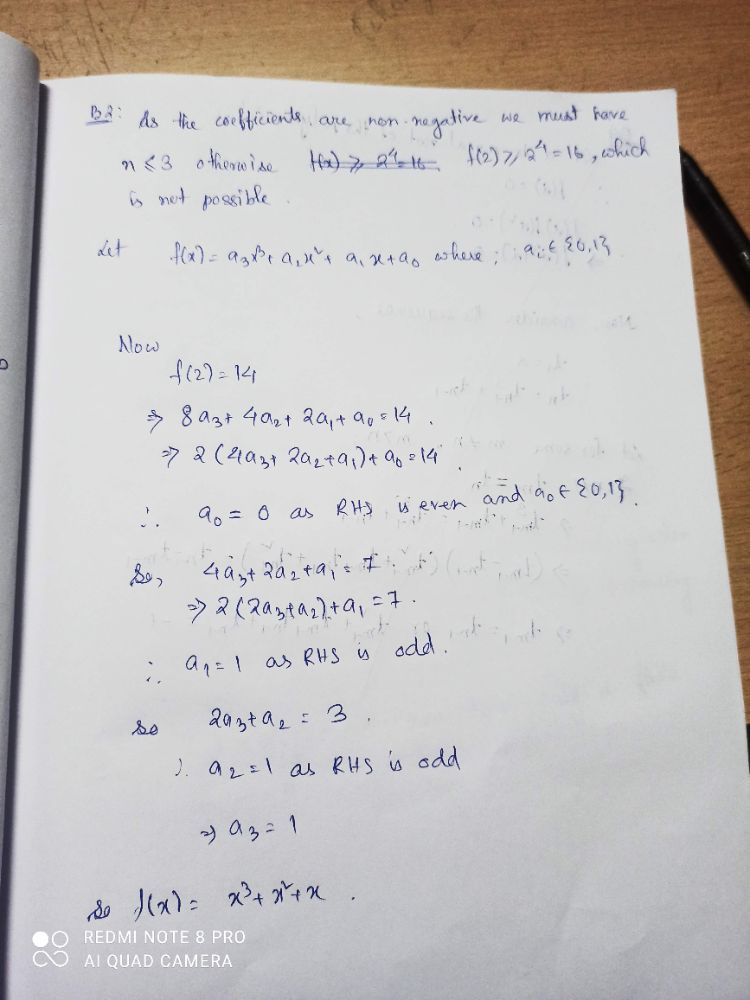 B2: As the coefficients are non-negative we must have
n ≤ 3 otherwise f(x) ≥ 2⁴=16. f(2) ≥ 2⁴ = 16, which
is not possible.
Let f(x) = a₃x³ + a₂x² + a₁x + a₀ where, aᵢ ∈ {0,1}
Now
f(2) = 14
⇒ 8a₃ + 4a₂ + 2a₁ + a₀ = 14.
⇒ 2(4a₃ + 2a₂ + a₁) + a₀ = 14.
∴ a₀ = 0 as RHS is even and a₀ ∈ {0,1}.
So, 4a₃ + 2a₂ + a₁ = 7.
⇒ 2(2a₃ + a₂) + a₁ = 7.
∴ a₁ = 1 as RHS is odd.
so 2a₃ + a₂ = 3.
∴ a₂ = 1 as RHS is odd
⇒ a₃ = 1
so f(x) = x³ + x² + x.
REDMI NOTE 8 PRO
AI QUAD CAMERA